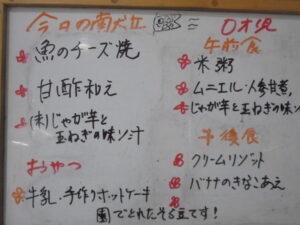 今日の献立
魚のチーズ焼
甘酢和え
(味)じゃが芋と
玉ねぎの味ソ汁
おやつ
牛乳・手作りホットケーキ
園でとれたそら豆です!
0才児
午前食
米粥
ムニエル・人参甘煮,
じゃが芋と玉ねぎの味ソ汁
午後食
クリームリゾット
バナナのきなこあえ